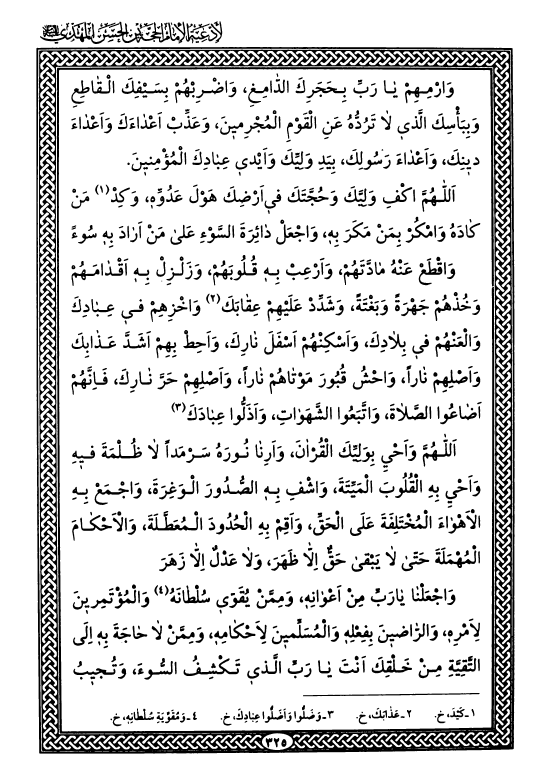 لأدعية الإمام الحجة بن الحسن المهدي
وَارْمِهِمْ يٰا رَبِّ بِحَجَرِكَ الدّٰامِغِ، وَاضْرِبْهُمْ بِسَيْفِكَ الْقٰاطِعِ
وَبِبَأْسِكَ الَّذي لاٰ تَرُدُّهُ عَنِ الْقَوْمِ الْمُجْرِمينَ، وَعَذِّبْ اَعْدٰاءَكَ وَاَعْدٰاءَ
دينِكَ، وَاَعْدٰاءَ رَسُولِكَ، بِيَدِ وَلِيِّكَ وَاَيْدي عِبٰادِكَ الْمُؤْمِنينَ.
اَللّٰهُمَّ اكْفِ وَلِيَّكَ وَحُجَّتَكَ في اَرْضِكَ هَوْلَ عَدُوِّهِ، وَكِدْ (١) مَنْ
كٰادَهُ وَامْكُرْ بِمَنْ مَكَرَ بِهِ، وَاجْعَلْ دٰائِرَةَ السَّوْءِ عَلىٰ مَنْ اَرٰادَ بِهِ سُوءً
وَاقْطَعْ عَنْهُ مٰادَّتَهُمْ، وَاَرْعِبْ بِهِ قُلُوبَهُمْ، وَزَلْزِلْ بِهِ اَقْدٰامَهُمْ
وَخُذْهُمْ جَهْرَةً وَبَغْتَةً، وَشَدِّدْ عَلَيْهِمْ عِقٰابَكَ (٢) وَاَخْزِهِمْ في عِبٰادِكَ
وَالْعَنْهُمْ في بِلاٰدِكَ، وَاَسْكِنْهُمْ اَسْفَلَ نٰارِكَ، وَاَحِطْ بِهِمْ اَشَدَّ عَذٰابِكَ
وَاَصْلِهِمْ نٰاراً، وَاحْشُ قُبُورَ مَوْتٰاهُمْ نٰاراً، وَاَصْلِهِمْ حَرَّ نٰارِكَ، فَاِنَّهُمْ
اَضٰاعُوا الصَّلاٰةَ، وَاتَّبَعُوا الشَّهَوٰاتِ، وَاَذَلُّوا عِبٰادَكَ (٣)
اَللّٰهُمَّ وَاَحْيِ بِوَلِيِّكَ الْقُرْاٰنَ، وَاَرِنٰا نُورَهُ سَرْمَداً لاٰ ظُلْمَةَ فيهِ
وَاَحْيِ بِهِ الْقُلُوبَ الْمَيِّتَةَ، وَاشْفِ بِهِ الصُّدُورَ الْوَغِرَةَ، وَاجْمَعْ بِهِ
الْاَهْوٰاءَ الْمُخْتَلِفَةَ عَلَى الْحَقِّ، وَاَقِمْ بِهِ الْحُدُودَ الْمُعَطَّلَةَ، وَالْاَحْكٰامَ
الْمُهْمَلَةَ حَتّىٰ لاٰ يَبْقىٰ حَقٌّ اِلّاٰ ظَهَرَ، وَلاٰ عَدْلٌ اِلّاٰ زَهَرَ
وَاجْعَلْنٰا يٰارَبِّ مِنْ اَعْوٰانِهِ، وَمِمَّنْ يُقَوّي سُلْطٰانَهُ (٤) وَالْمُؤْتَمِرينَ
لِاَمْرِهِ، وَالرّٰاضينَ بِفِعْلِهِ وَالْمُسَلِّمينَ لِاَحْكٰامِهِ، وَمِمَّنْ لاٰ حٰاجَةَ بِهِ اِلَى
التَّقِيَّةِ مِنْ خَلْقِكَ اَنْتَ يٰا رَبِّ الَّذي تَكْشِفُ السُّوءَ، وَتُجيبُ
١ـ كَيْدَ، خ. ٢ـ عَذٰابَكَ، خ. ٣ـ وَضَلُّوا وَاَضَلُّوا عِبٰادَكَ، خ. ٤ـ وَمُقَوِّيَةِ سُلْطٰانِهِ، خ.
٣٢٥